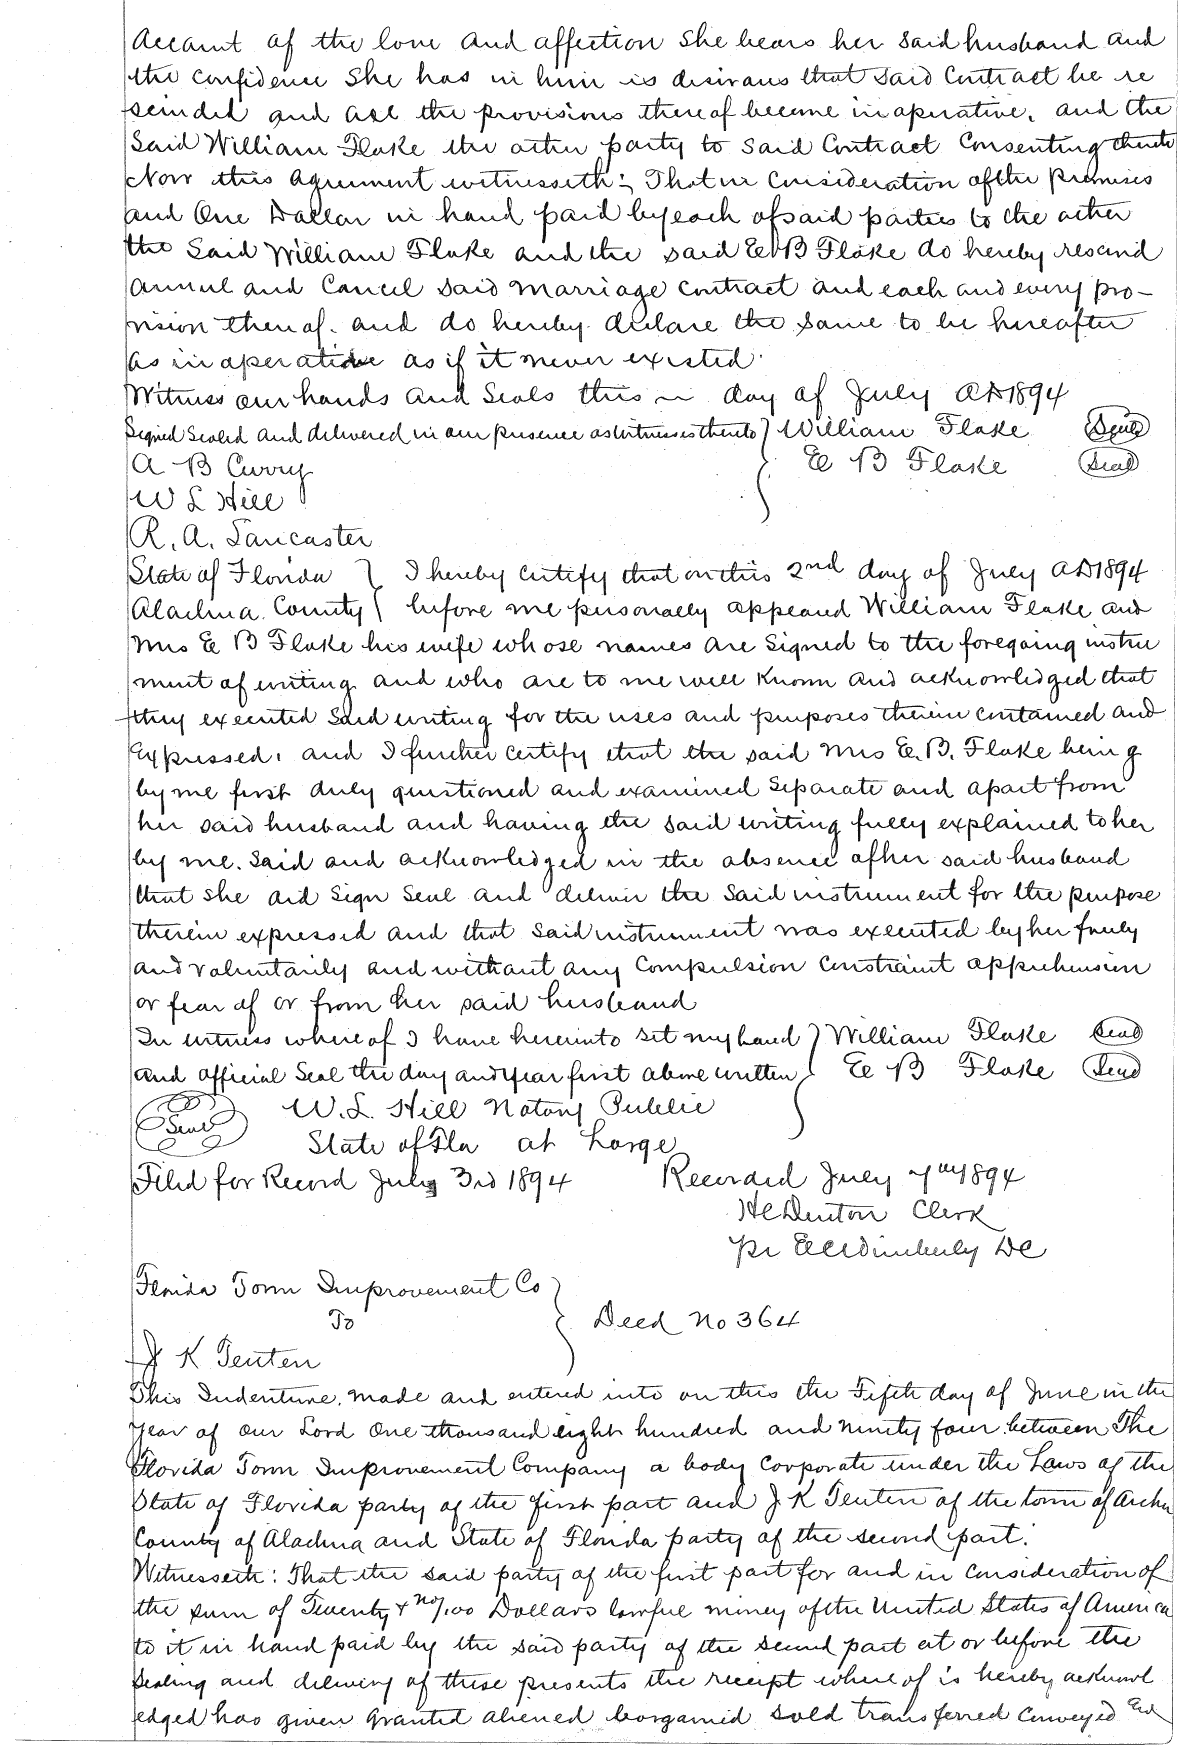 account of the love and affection She bears her said husband and
the confidence She has in him is desirous that said Contract be re
scinded and all the provisions thereof become inoperative. and the
Said William Flake the other party to said Contract Consenting thereto
Now this agreement witnesseth: That in Consideration of the premises
and One Dollar in hand paid by each of said parties to the other
the Said William Flake and the said E B Flake do hereby rescind
annul and Cancel said marriage Contract and each and every pro-
vision thereof. and do hereby declare the same to be hereafter
as inoperative as if it never existed.
Witness our hands and Seals this day of July AD 1894
Signed Sealed and delivered in our presence as witnesses thereto } William Flake Seal
A B Curry E B Flake Seal
W L Hill
R. A. Lancaster
State of Florida } I hereby certify that on this 2nd day of July AD 1894
Alachua County } before me personally appeared William Flake and
Mrs E B Flake his wife whose names are Signed to the foregoing instru
ment of writing and who are to me well known and acknowledged that
they executed Said writing for the uses and purposes therein contained and
Expressed. and I further certify that the said Mrs E. B. Flake being
by me first duly questioned and examined separate and apart from
her said husband and having the said writing fully explained to her
by me. Said and acknowledged in the absence of her said husband
that she did Sign Seal and deliver the Said instrument for the purpose
therein expressed and that Said instrument was executed by her freely
and voluntarily and without any Compulsion Constraint apprehension
or fear of or from her said husband
In witness whereof I have hereunto set my hand } William Flake Seal
and official Seal the day and year first above written } E B Flake Seal
Seal W. L. Hill Notary Public
State of Fla at Large
Filed for Record July 3rd 1894 Recorded July 7th 1894
H C Denton Clerk
pr E C Wimberly DC
Florida Town Improvement Co
To } Deed No 364
J K Teuten
This Indenture. made and entered into on this the Fifth day of June in the
Year of our Lord One thousand eight hundred and ninety four between The
Florida Town Improvement Company a body Corporate under the Laws of the
State of Florida party of the first part and J K Teuten of the town of Archer
County of Alachua and State of Florida party of the second part.
Witnesseth: That the said party of the first part for and in consideration of
the sum of Twenty & no/100 Dollars lawful money of the United States of America
to it in hand paid by the said party of the second part at or before the
sealing and delivery of these presents the receipt whereof is hereby acknowl
edged has given granted aliened bargained sold transferred Conveyed and